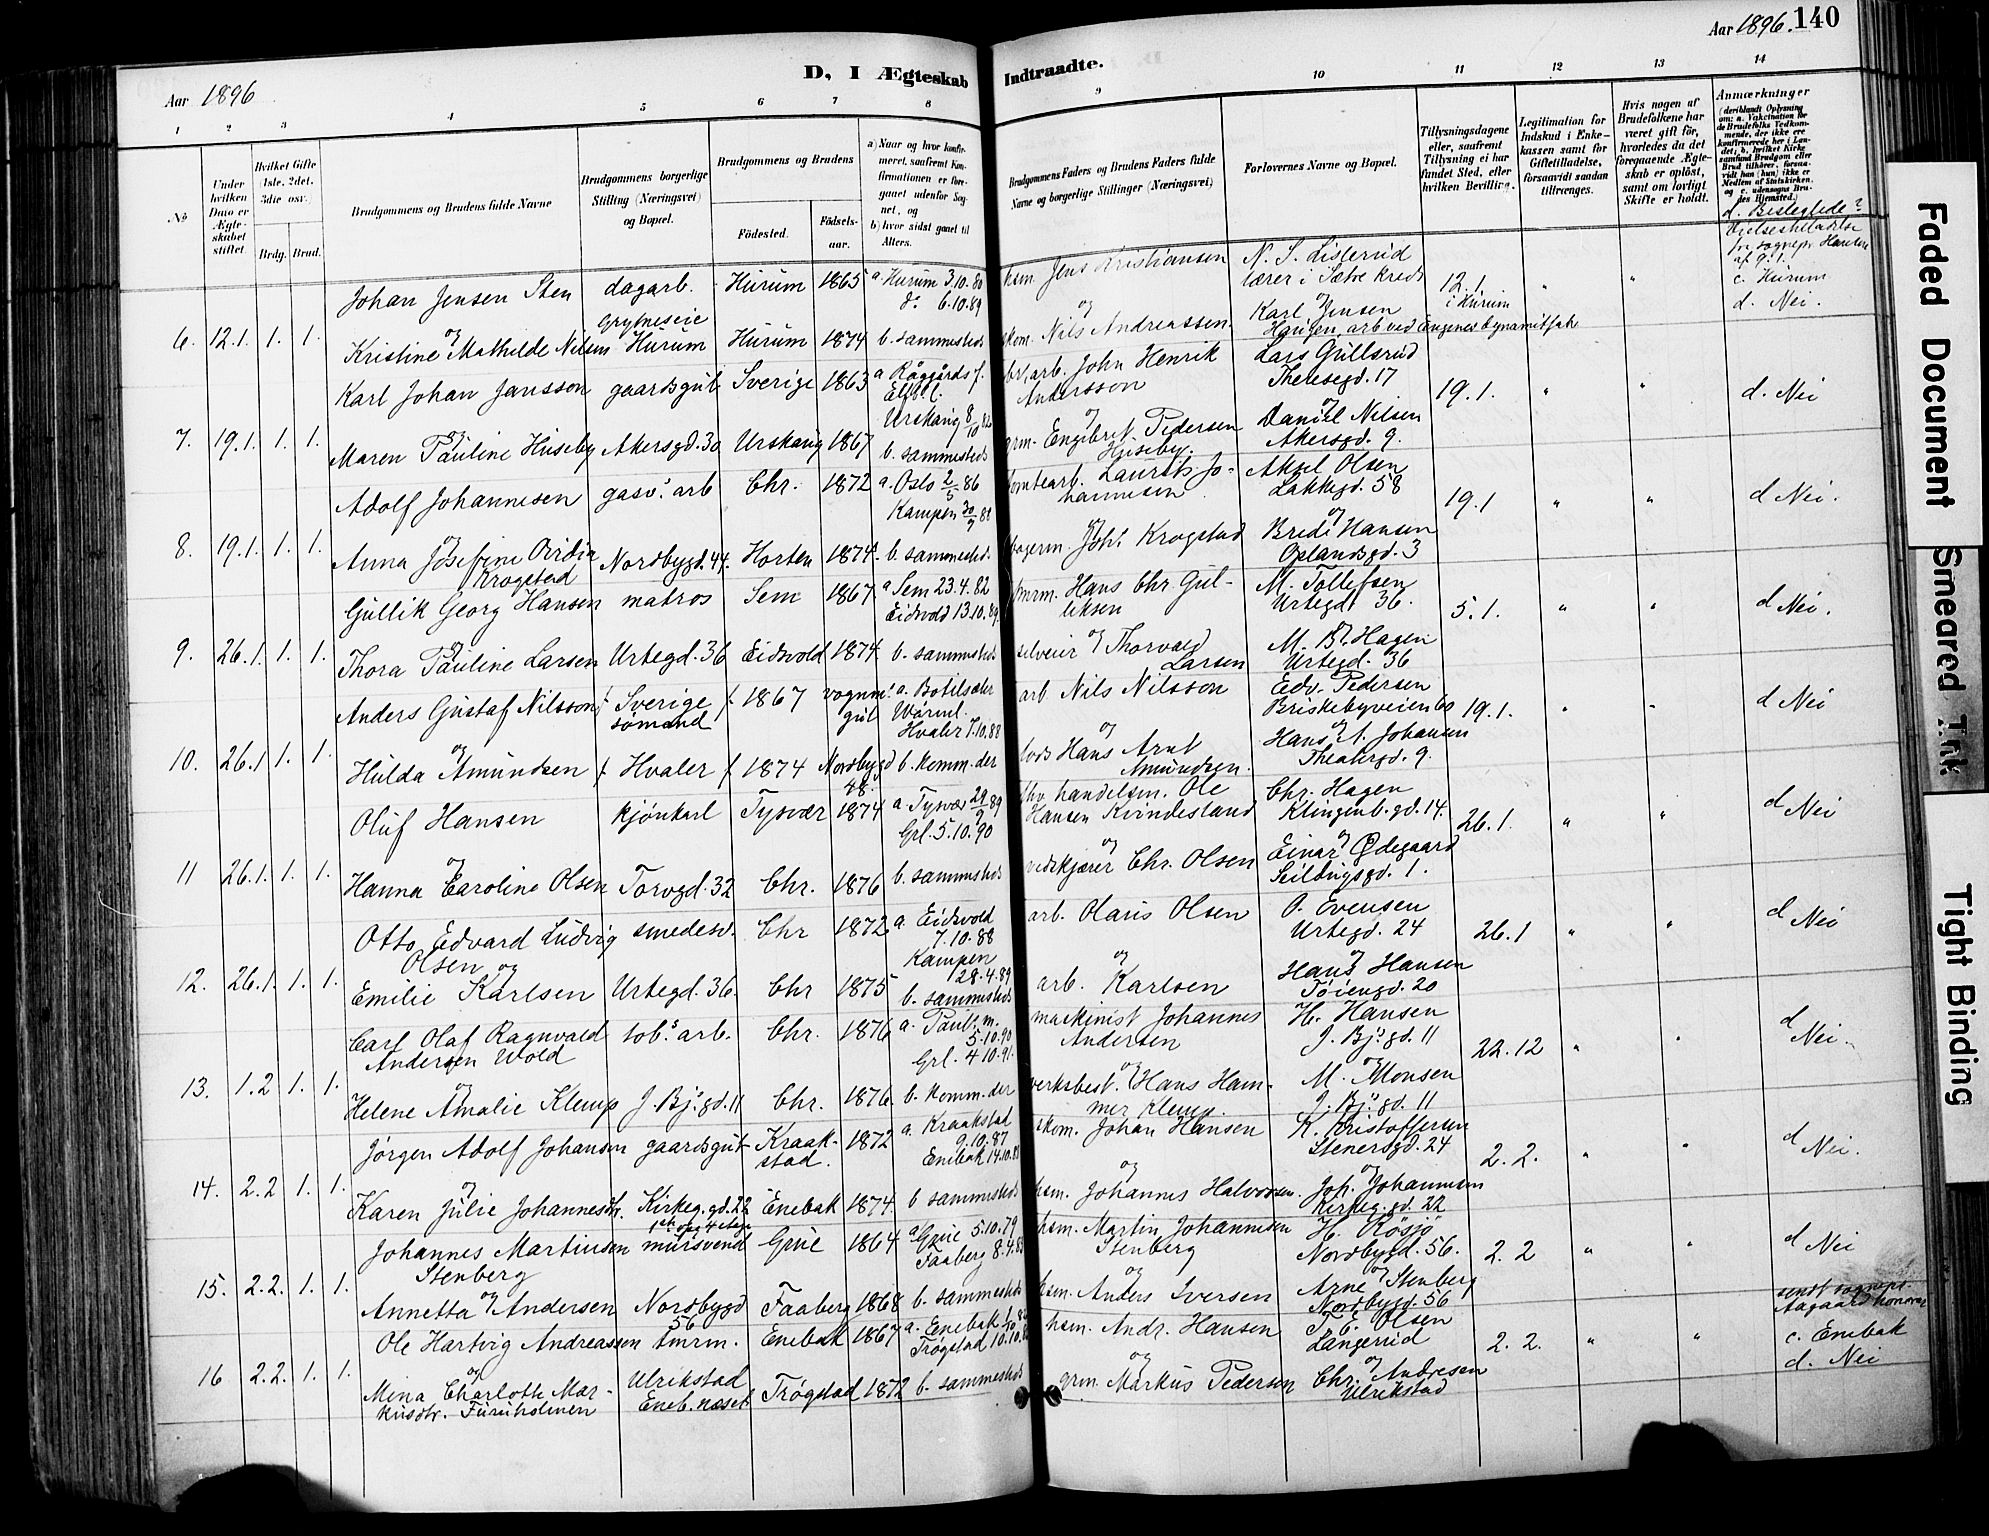 Aar 1896
D, I Ægteskab Indtraadte.
Aar 1896. 140
1 2 3 4 5 6 7 8 9 10 11 12 13 14
No
Under hvilken Dato er Ægteskabet stiftet.
Hvilket Gifte (1ste, 2det, 3die osv.)
Brdg. Brud.
Brudgommens og Brudens fulde Navne
Brudgommens borgerlige Stilling (Næringsvei) og Bopæl.
Brudgommens og Brudens
Födested. Födsels-aar.
a) Naar og hvor konfirmeret, saafremt Konfirmationen er foregaaet udenfor Sognet, og b) hvor sidst gaaet til Alters.
Brudgommens Faders og Brudens Faders fulde Navne og borgerlige Stillinger (Næringsvei)
Forlovernes Navne og Bopæl.
Tillysningsdagene eller, saafremt Tillysning ei har fundet Sted, efter hvilken Bevilling.
Legitimation for Indskud i Enkekassen samt for Giftetilladelse, forsaavidt saadan tiltrænges.
Hvis nogen af Brudefolkene har været gift för, hvorledes da det foregaaende Ægteskab er oplöst, samt om lovligt Skifte er holdt.
Anmærkninger
d. Beslegtede?
6. 12.1. 1. 1.
Johan Jensen Sten dagarb. Hurum 1865 a. Hurum 3.10.80
do 6.10.89
hsm. Jens Kristiansen N. S. Lislerud
lærer i Sætre kreds 12.1. i Hurum " "
c. Hurum
d. Nei.
og Grytneseie og Karl Jensen
Kristine Mathilde Nilsen Hurum Hurum 1874 b. sammesteds skom. Nils Andreassen. Haugen, arb. ved Engenes dynamitfab
7. 19.1. 1. 1.
Karl Johan Jansson gaardsgut Sverige 1863
brt. arb. John Henrik Andersson Lars Gullsrud
Theresegd. 17 19.1. " " d. Nei
og Urskaug 8/10 82
Maren Pauline Huseby Akersgd. 30 Urskaug 1867 b. sammesteds grm. Engebret Pedersen Huseby. Daniel Nilsen
Akersgd. 9.
8. 19.1. 1. 1.
Adolf Johannesen gasv. arb Chr. 1872 a. Oslo 2/5 86
Kampen 30/9 88
tomtearb. Laurits Johannesen Aksel Olsen
Lakkegd. 58 19.1 " " d Nei.
og
Anna Josefine Ovidia Krogstad Nordbygd. 44. Horten 1874. b. sammested. bagerm. Joh. Krogstad Brede Hansen
Oplandsgd. 3
9. 26.1. 1. 1.
Gullik Georg Hansen matros Sem 1867 a Sem 23.4.82
Eidsvold 13.10.89
tmrm. Hans Chr. Gulliksen M. Tollefsen
Urtegd. 36. 5.1. " " d Nei.
og
Thora Pauline Larsen Urtegd. 36 Eidsvold 1874. b. sammesteds selveier Thorvald Larsen M. B. Hagen
Urtegd. 36
10. 26.1 1. 1.
Anders Gustaf Nilsson Sverige 1867 vognm. gut a. Botilsæter
Värml.
sömand Hvaler 7.10.88
arb Nils Nilsson Edv. Pedersen
Briskebyveien 60 19.1. " " d Nei
og
Hulda Amundsen Hvaler 1874 Nordbygd 48. b. komm. der lods Hans Arnt Amundsen. Hans A. Johansen
Theatergd. 9.
11 26.1. 1. 1.
Oluf Hansen kjörekarl Tysvær 1874 a. Tysvær 29/9 89
Grl. 5.10.90
fhv. handelsm. Ole Hansen Kvindesland Chr. Hagen
Klingenb.gd. 14. 26.1. " " d Nei
og
Hanna Caroline Olsen Torvgd. 32 Chr. 1876 b. sammesteds vedskjærer Chr. Olsen Einar Ødegaard
Seildugsgd. 1.
12. 26.1. 1. 1.
Otto Edvard Ludvig Olsen smedesv. Chr 1872 a. Eidsvold
7.10.88
Kampen
28.4.89
arb. Olaus Olsen O. Evensen
Urtegd. 24 26.1 " " d Nei
og
Emilie Karlsen Urtegd. 36. Chr 1875 b. sammesteds arb. Karlsen Hans Hansen
Töiengd. 20
13. 1.2 1. 1.
Carl Olaf Ragnvald Andersen Wold tobs. arb. Chr. 1876 a. Paul. m.
5.10.90
Grl. 4.10.91.
maskinist Johannes Andersen H. Hansen
J. Bj's gd. 11 22.12 " " d Nei.
og
Helene Amalie Klemp J. Bj's gd. 11 Chr. 1876. b. komm. der verksbest. Hans Hammer Klemp. M. Monsen
J. Bj's gd. 11
14. 2.2 1. 1.
Jörgen Adolf Johansen gaardsgut Kraakstad. 1872 a. Kraakstad
9.10.87
Enebak 14.10.88
skom. Johan Hansen K. Kristoffersen
Stenersgd. 24 2.2. " " d Nei.
og
Karen Julie Johannesdtr. Kirkeg.gd. 22 Enebak 1874. b sammesteds hsm. Johannes Halvorsen. Joh. Johannesen
Kirkeg.gd. 22
15. 2.2. 1. 1.
Johannes Martinsen Stenberg mursvend Grue 1864 a Grue 5.10.79
Faaberg
hsm. Martin Johannesen Stenberg H. Røsjø
Nordbygd. 56. 2.2 " " d Nei
og
Annetta Andersen Nordbygd 56 Faaberg 1868 b. sammesteds hsm. Anders Iversen Arne Stenberg
Nordbygd. 56
16 2.2. 1. 1.
Ole Hartvig Andreassen tmrm. Enebak 1867 a. Enebak
Trögstad
hsm. Andr. Hansen T. E. Olsen
Langerud 2.2. " "
sendt sognepr.
Aagaard
c. Enebak
d. Nei
og
Mina Charlotte Markusdtr. Furuholmen Ulrikstad
Eneb.næset Trögstad 1872 b. sammesteds grm. Markus Pedersen Chr. Andresen
Ulrikstad
Faded Document
Smeared Ink
Tight Binding